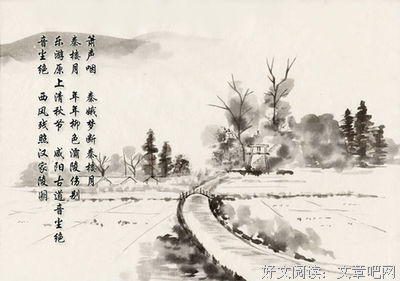 箫声咽　秦娥梦断秦楼月
秦楼月　年年柳色灞陵伤别
乐游原上清秋节　咸阳古道音尘绝
音尘绝　西风残照汉家陵阙
好文阅读：文章吧网